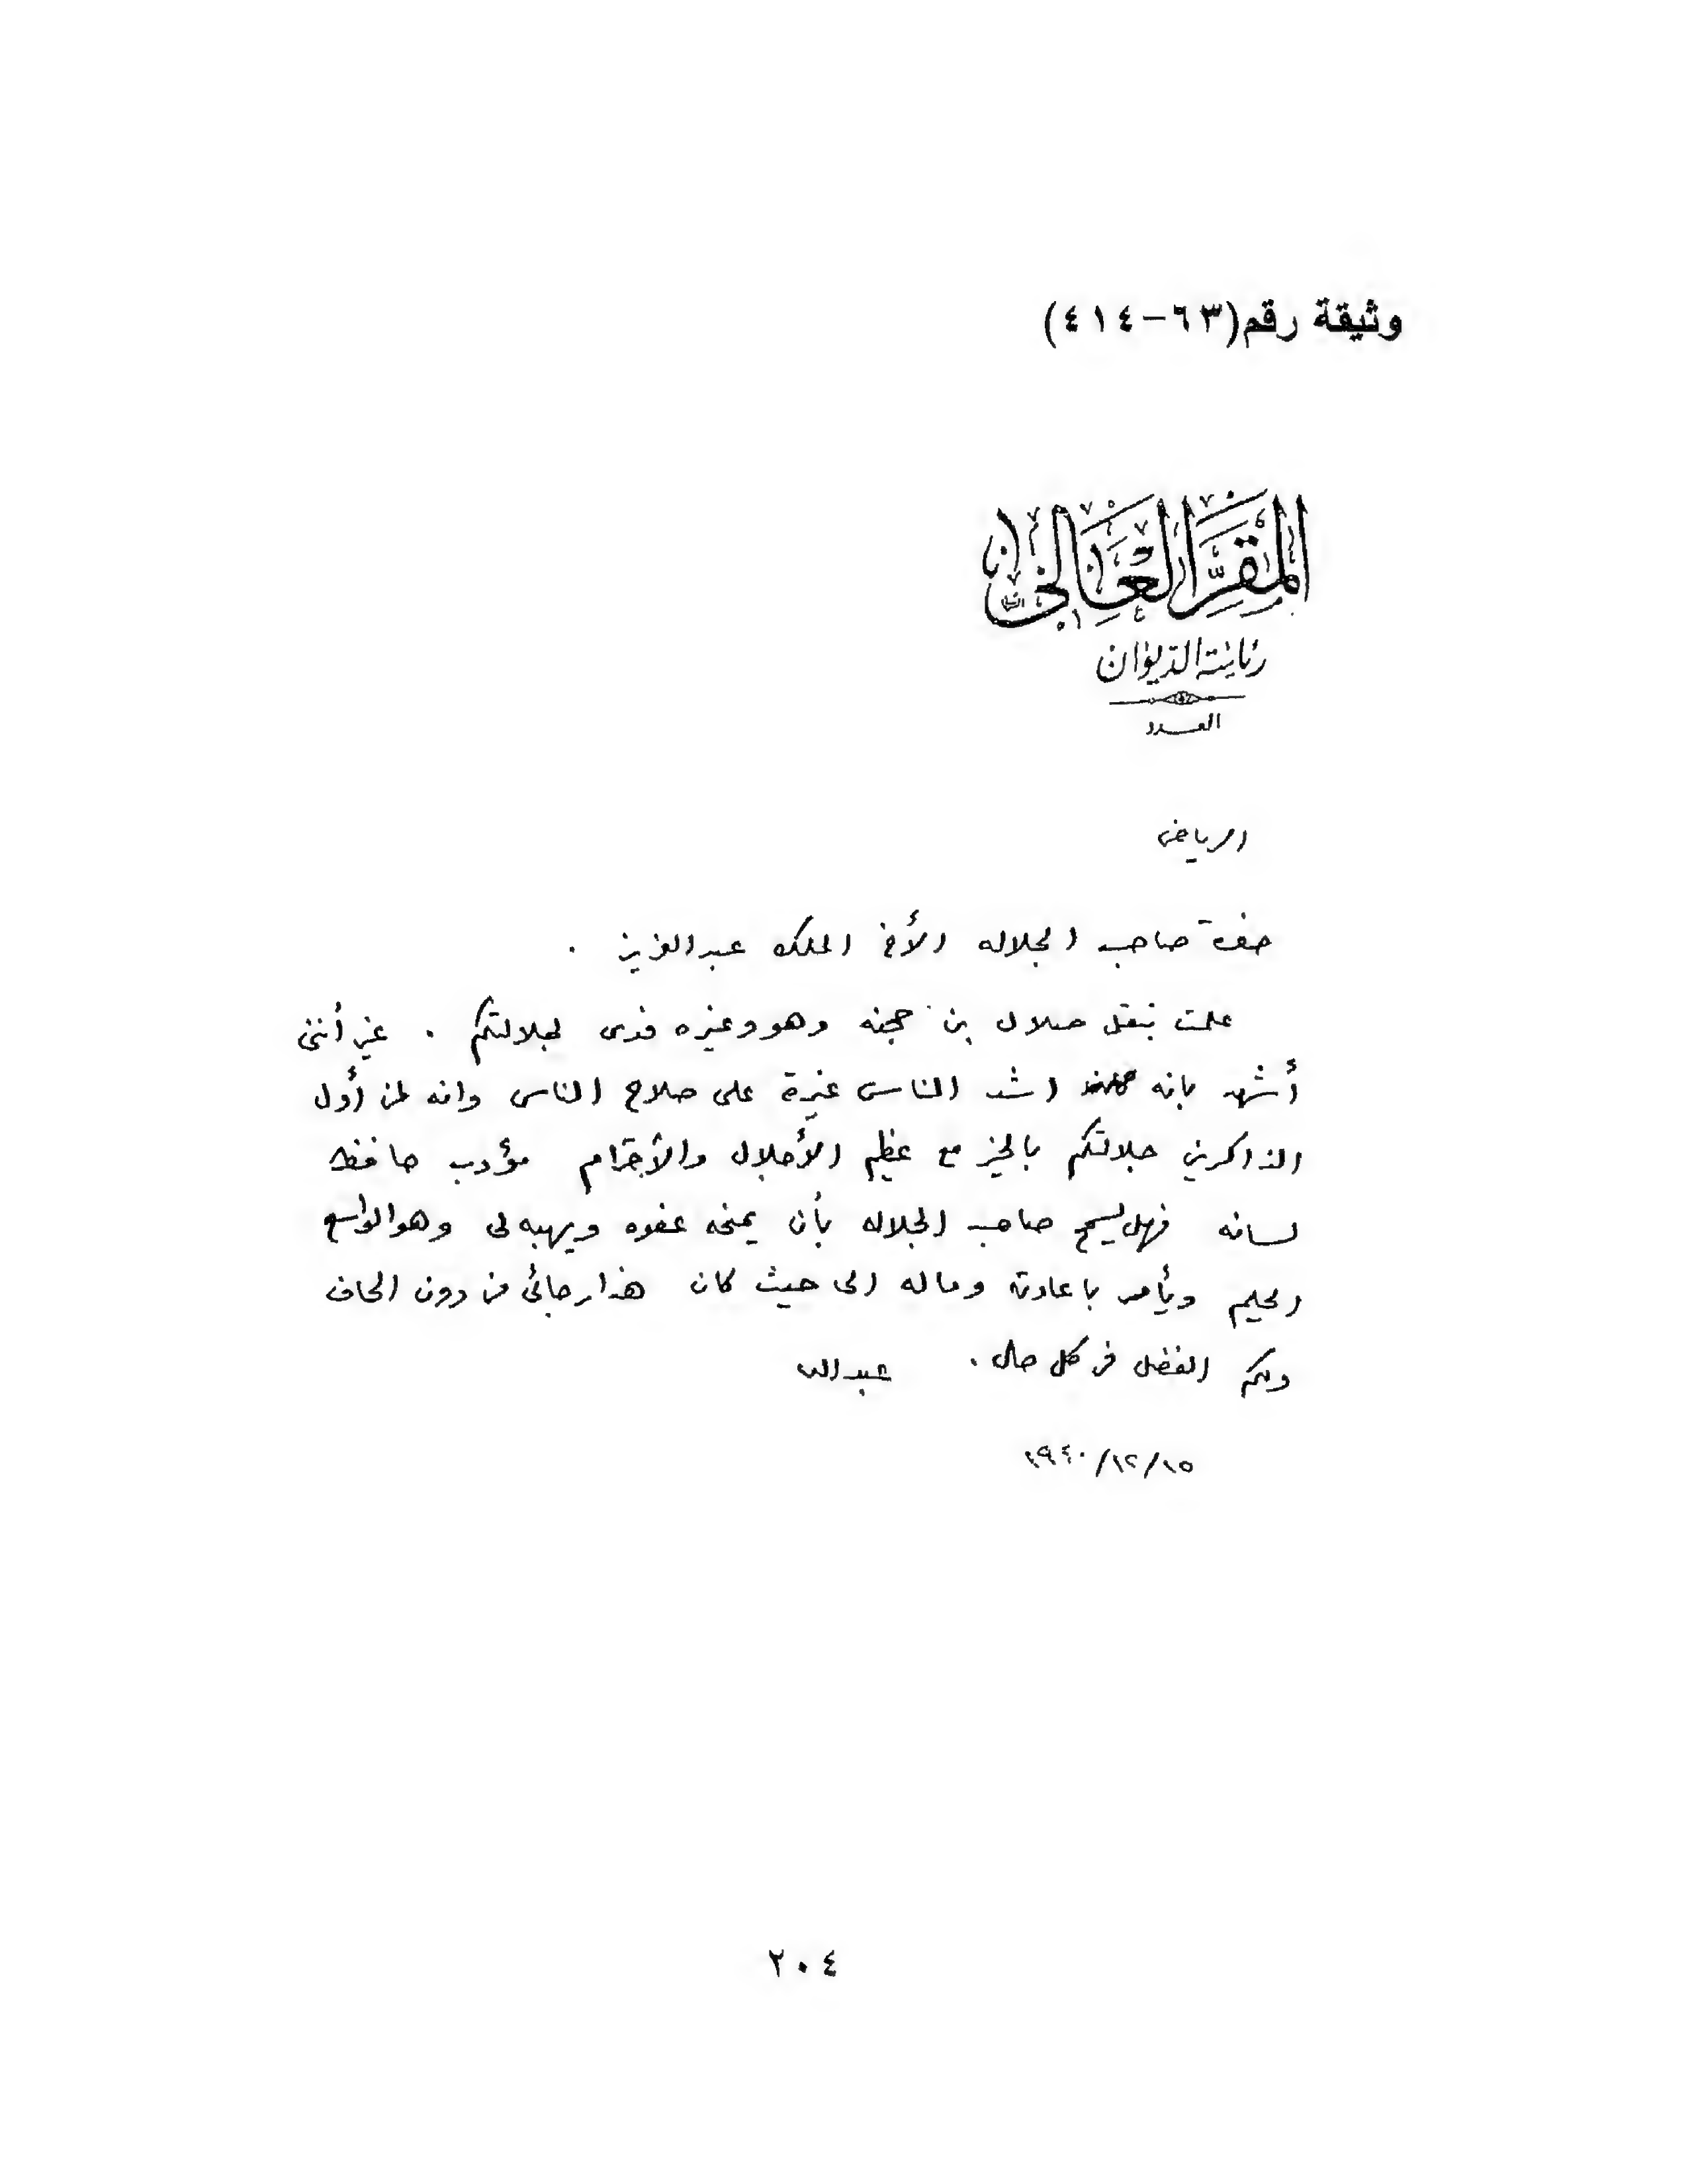 وثيقة رقم(٦٣-٤١٤)
المقر العالي
رئاسة الديوان
العدد
الرياض
حضرة صاحب الجلاله الأخ الملك عبدالعزيز .
علمت بنقل صلال بن حجنه وهو وغيره فدى لجلالتكم . غير أنني
أشهد بانه اشد الناس غيرة على صلاح الناس وانه لمن أول
الذاكرين جلالتكم بالخير مع عظيم الأجلال والأحترام مؤدب حافظ
لسانه فهل يسمح صاحب الجلاله بأن يمنحه عفوه ويهبه لي وهو الواسع
الحليم ويأمر باعادته وماله الى حيث كان هذا رجائي من دون الحاف
ولكم الفضل في كل حال . عبدالله
١٩٤٠/١٢/١٥
٢٠٤